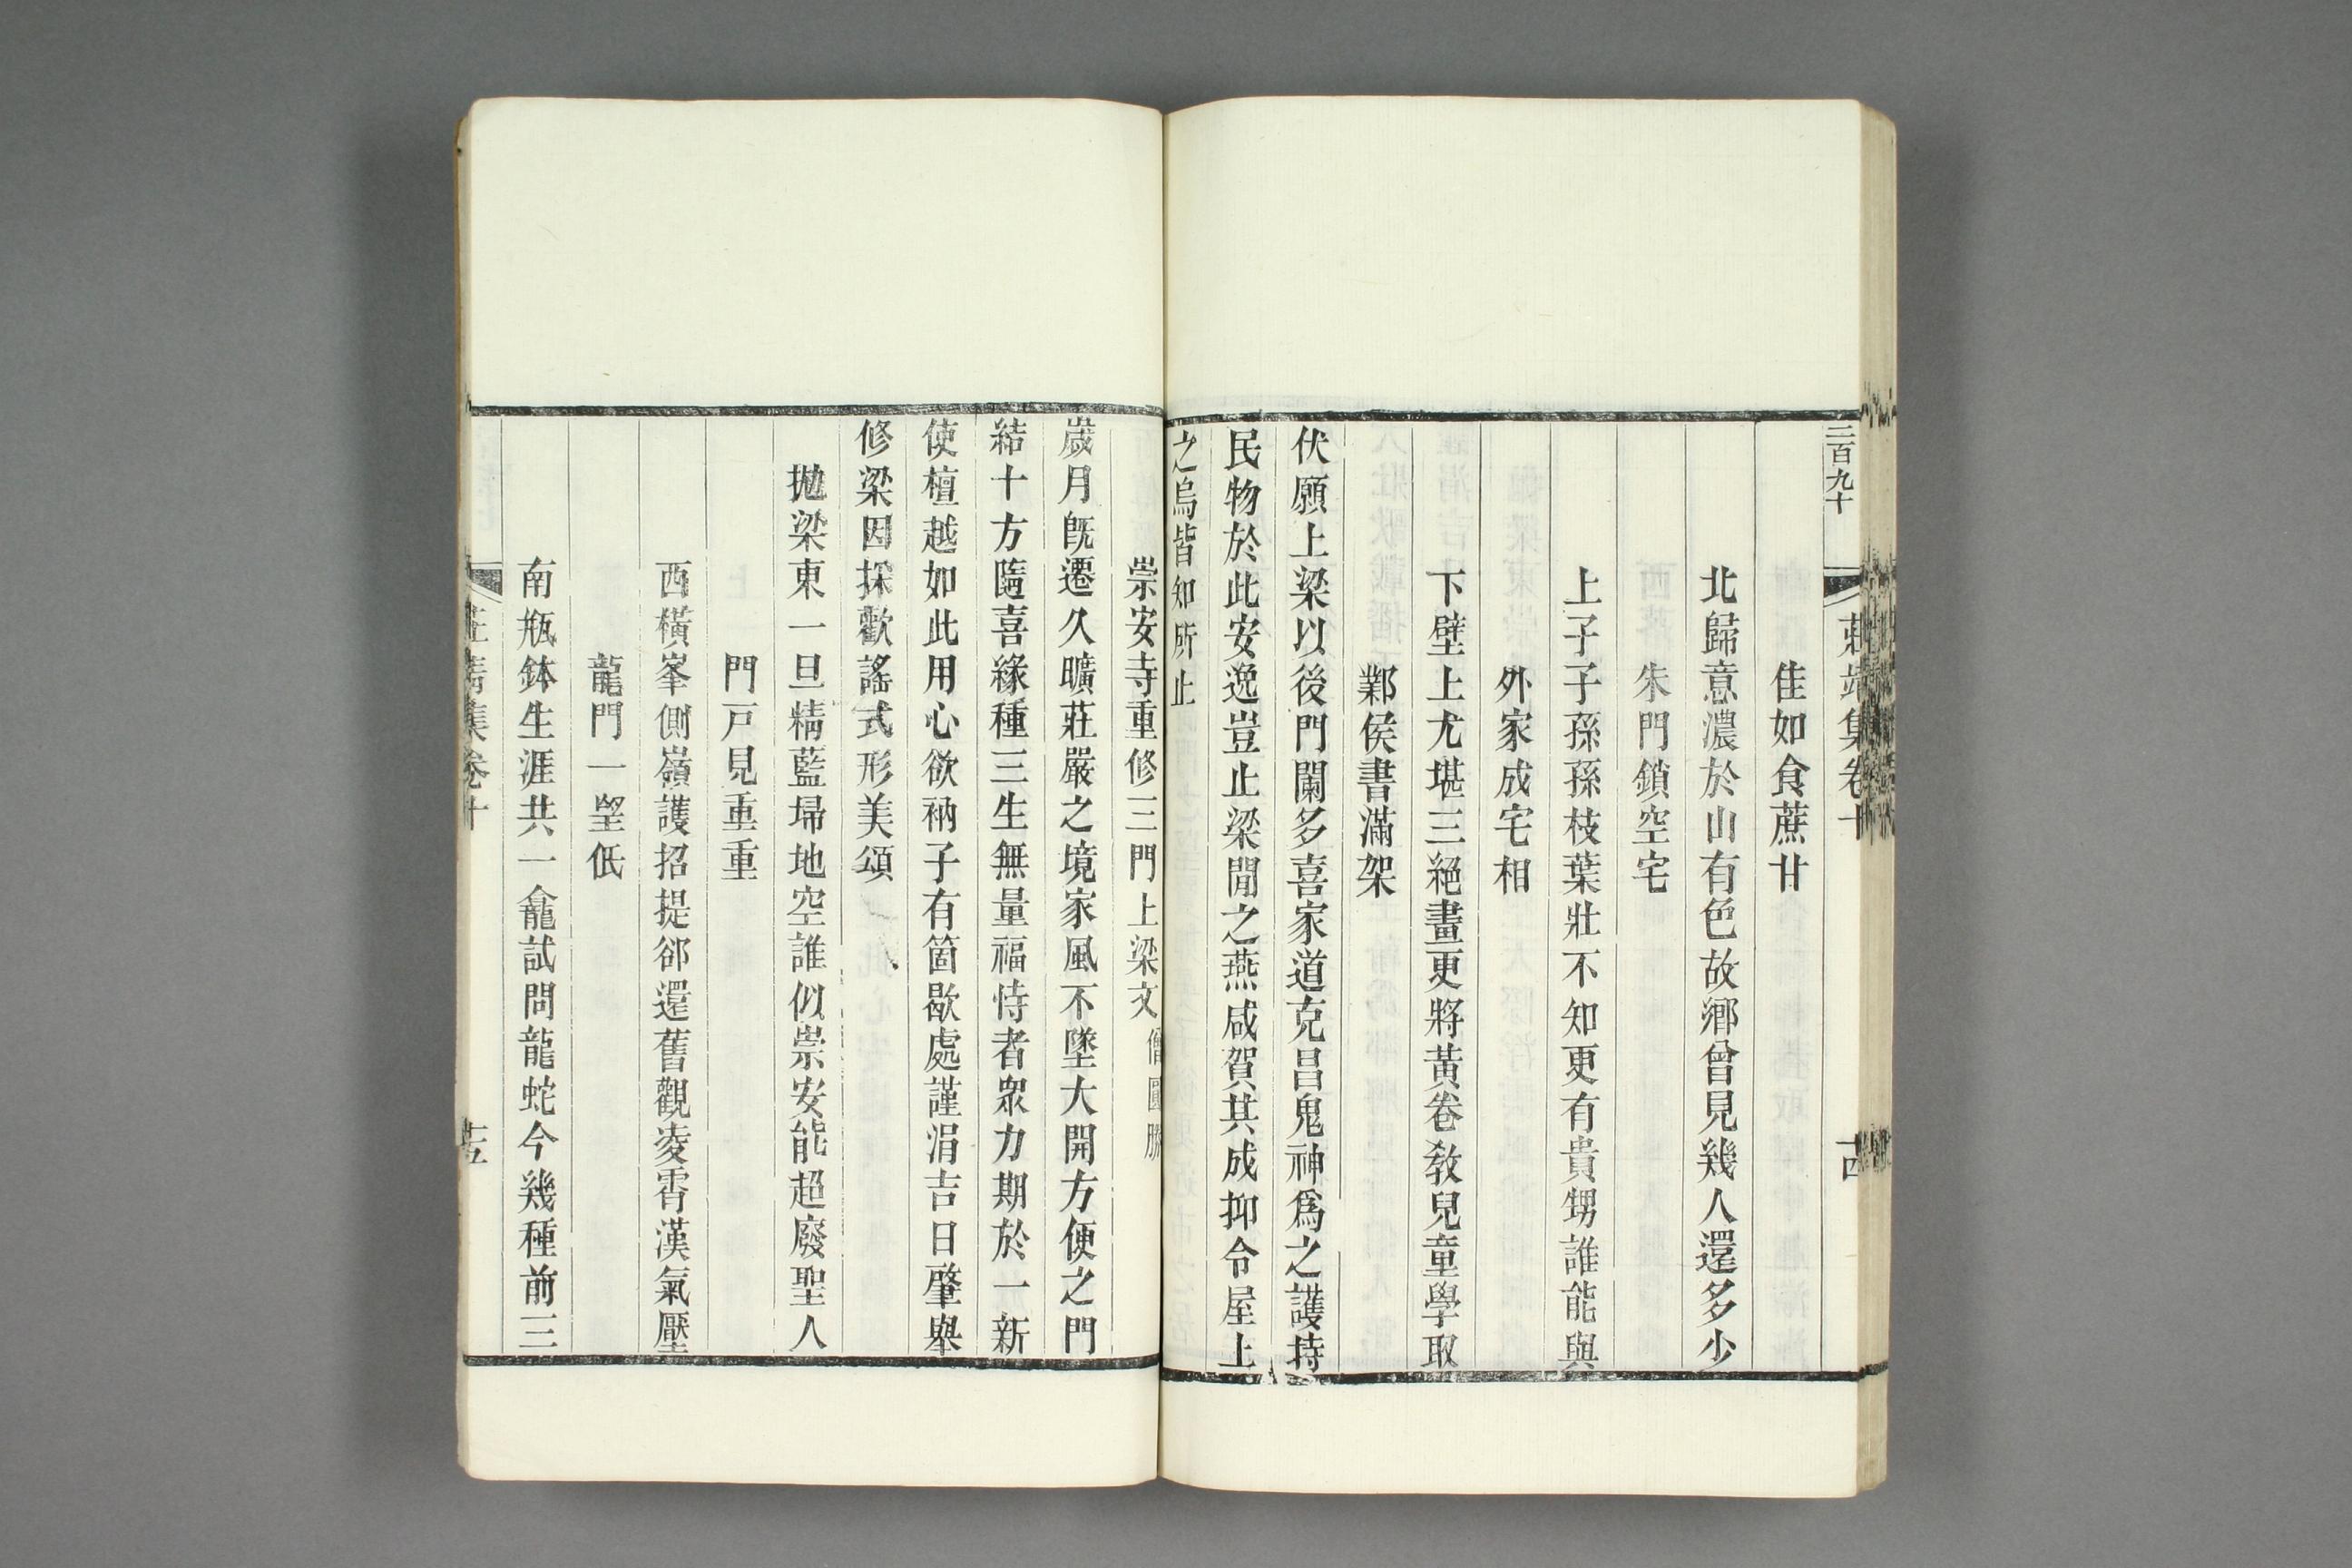 三百九十
莊靖集卷十
佳如食蔗甘
北歸意濃於山有色故鄉曾見幾人還多少
朱門鎖空宅
上子子孫孫枝葉壯不知更有貴甥誰能與
外家成宅相
下壁上尤堪三絕畫更將黃卷敎兒童學取
鄴侯書滿架
伏願上梁以後門闌多喜家道克昌鬼神爲之護持
民物於此安逸豈止梁閒之燕咸賀其成抑令屋上
之烏皆知所止
崇安寺重修三門上梁文僧圓勝
歲月旣遷久曠莊嚴之境家風不墜大開方便之門
結十方隨喜緣種三生無量福恃者衆力期於一新
使檀越如此用心欲衲子有箇歇處謹涓吉日肇舉
修梁因採歡謠式形美頌
拋梁東一旦精藍埽地空誰似崇安能超廢聖人
門戸見重重
西橫峯側嶺護招提郤還舊觀凌霄漢氣壓
龍門一望低
南瓶鉢生涯共一龕試問龍蛇今幾種前三
莊靖集卷十
十五